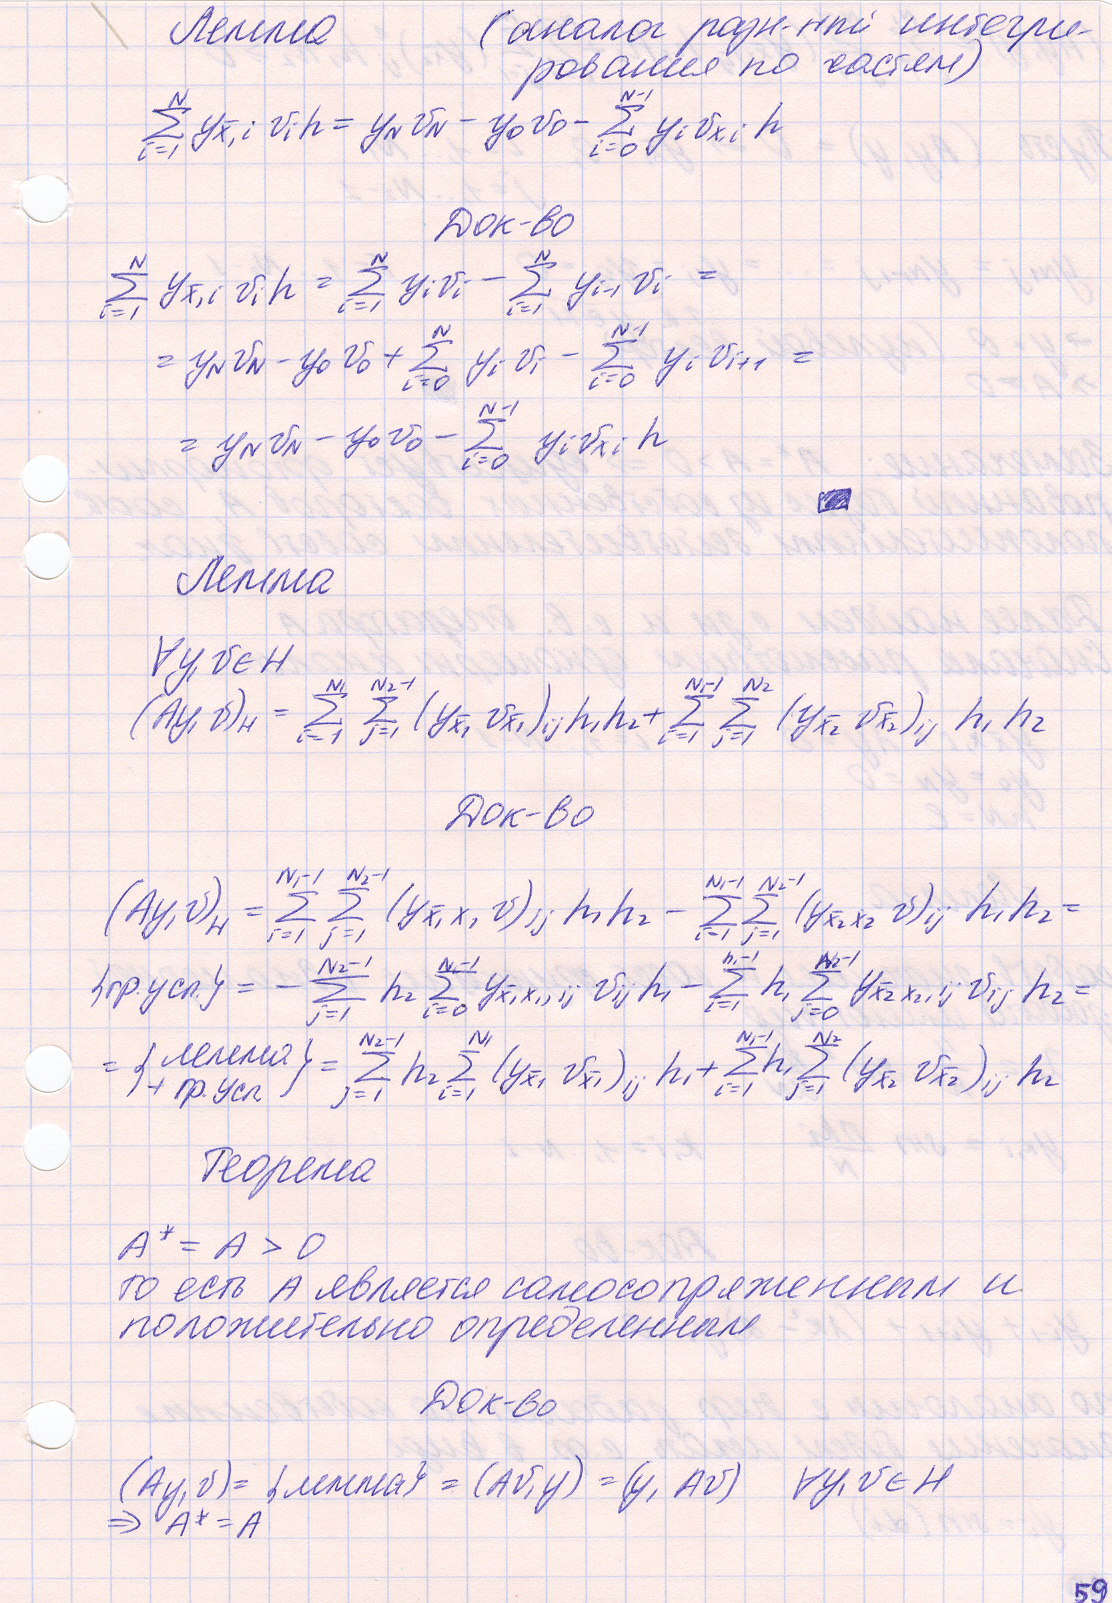 Лемма (аналог разн-ной интегри-
рования по частям)
\sum_{i=1}^{N} y_{\bar{x},i} v_i h = y_N v_N - y_0 v_0 - \sum_{i=0}^{N-1} y_i v_{x,i} h
Док-во
\sum_{i=1}^{N} y_{\bar{x},i} v_i h = \sum_{i=1}^{N} y_i v_i - \sum_{i=1}^{N} y_{i-1} v_i =
= y_N v_N - y_0 v_0 + \sum_{i=0}^{N} y_i v_i - \sum_{i=0}^{N-1} y_i v_{i+1} =
= y_N v_N - y_0 v_0 - \sum_{i=0}^{N-1} y_i v_{x,i} h
Лемма
∀y, v ∈ H
(Ay, v)_H = \sum_{i=1}^{N_1} \sum_{j=1}^{N_2-1} (y_{\bar{x}_1} v_{\bar{x}_1})_{ij} h_1 h_2 + \sum_{i=1}^{N_1-1} \sum_{j=1}^{N_2} (y_{\bar{x}_2} v_{\bar{x}_2})_{ij} h_1 h_2
Док-во
(Ay, v)_H = \sum_{i=1}^{N_1-1} \sum_{j=1}^{N_2-1} (y_{\bar{x}_1 x_1} v)_{ij} h_1 h_2 - \sum_{i=1}^{N_1-1} \sum_{j=1}^{N_2-1} (y_{\bar{x}_2 x_2} v)_{ij} h_1 h_2 =
{гр. усл.} = - \sum_{j=1}^{N_2-1} h_2 \sum_{i=0}^{N_1-1} y_{\bar{x}_1 x_1, ij} v_{ij} h_1 - \sum_{i=1}^{N_1-1} h_1 \sum_{j=0}^{N_2-1} y_{\bar{x}_2 x_2, ij} v_{ij} h_2 =
= {лемма + гр. усл.} = \sum_{j=1}^{N_2-1} h_2 \sum_{i=1}^{N_1} (y_{\bar{x}_1} v_{\bar{x}_1})_{ij} h_1 + \sum_{i=1}^{N_1-1} h_1 \sum_{j=1}^{N_2} (y_{\bar{x}_2} v_{\bar{x}_2})_{ij} h_2
Теорема
A* = A > 0
то есть A является самосопряженным и
положительно определенным
Док-во
(Ay, v) = {лемма} = (Av, y) = (y, Av) ∀y, v ∈ H
⇒ A* = A
59